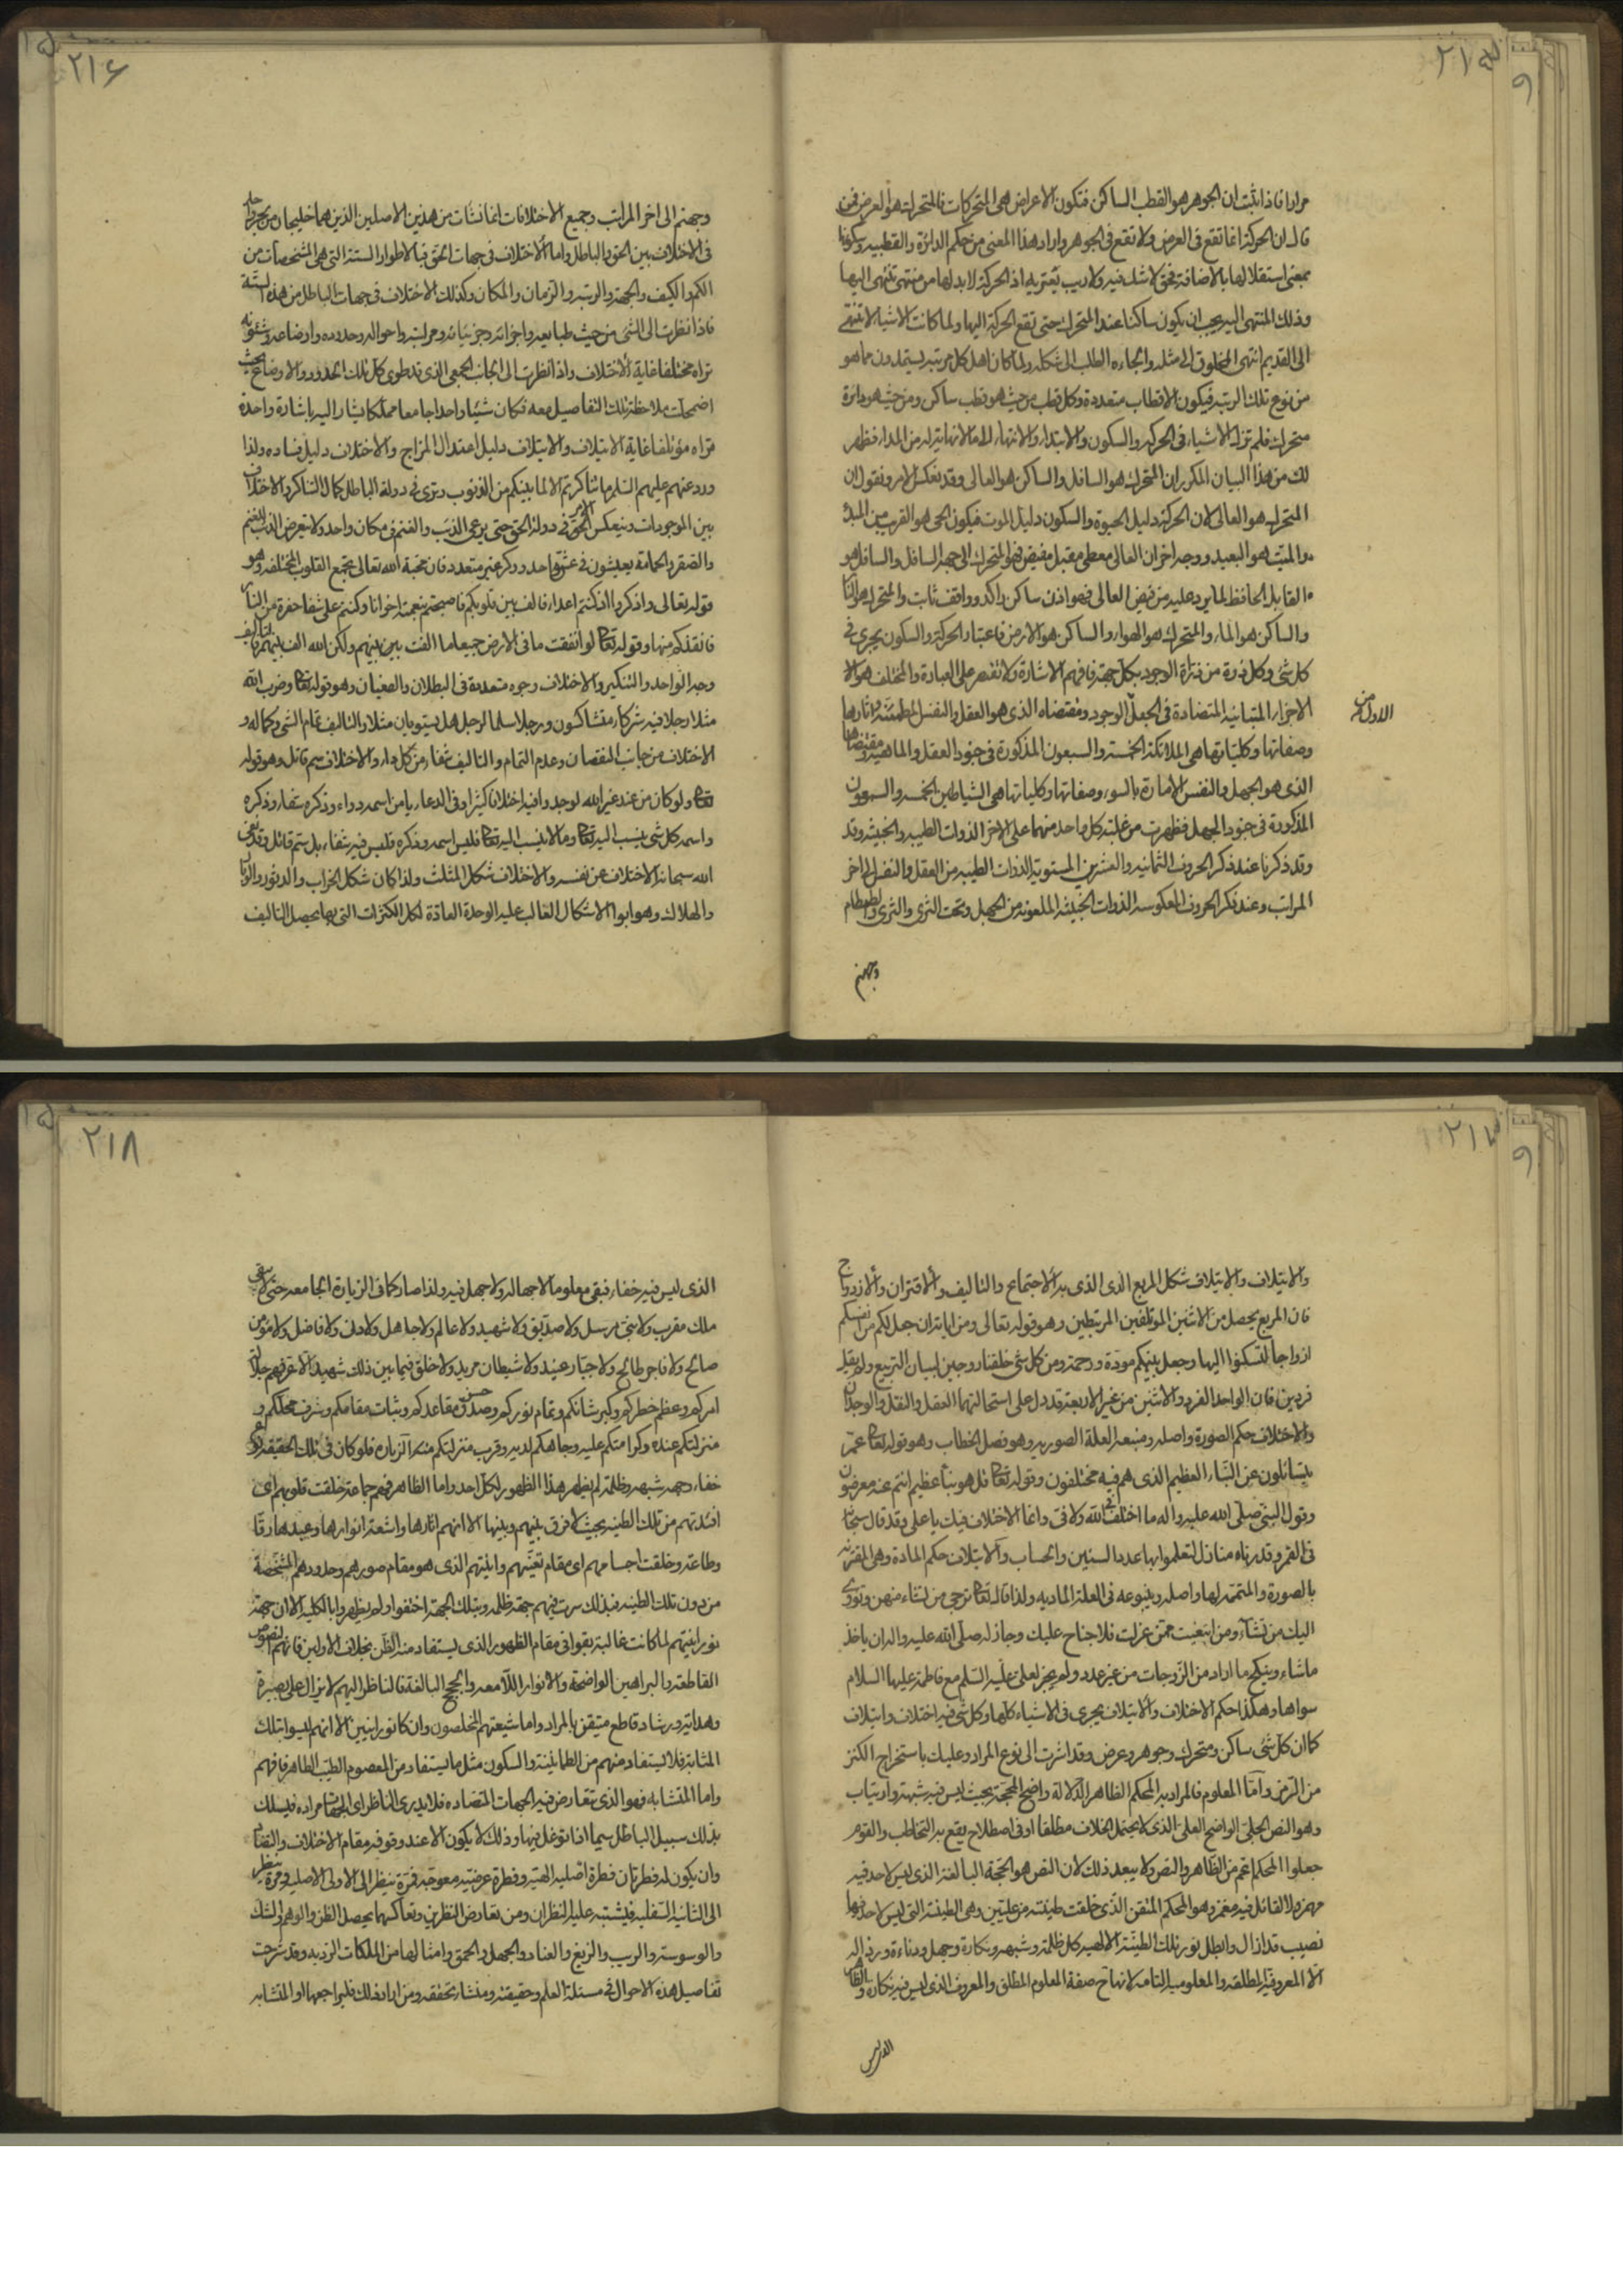 ٢١٥
مرارا فاذا ثبت ان الجوهر هو القطب الساكن فتكون الاعراض هى المتحركات فالمتحرك هو العرض فمن
قال ان الحركة انما تقع فى العرض ولا تقع فى الجوهر واراد هذا المعنى من حكم الدائرة والقطبيه
بمعنى استقلالها بالاضافة فحق لا شك فيه ولا ريب يعتريه اذ الحركة لا بد لها من منتهى تنتهى اليها
وذلك المنتهى اليه يجب ان يكون ساكنا عند المتحرك حتى تقع الحركة اليها ولما كانت الاشياء لا تنتهى
الى القديم انتهى المخلوق الى مثله والجاءه الطلب الى شكله ولما كان اهل كل مرتبه يستمدون مما هو
من نوع تلك الرتبه فيكون الاقطاب متعددة وكل قطب من حيث هو قطب ساكن ومن حيث هو دائرة
متحرك فلم تزل الاشياء فى الحركه والسكون والابتداء والانتهاء الى ما لا نهاية له من المدار فظهر
لك من هذا البيان المكرر ان المتحرك هو السافل والساكن هو العالى وقد نعكس الامر ونقول ان
المتحرك هو العالى لان الحركة دليل الحيوة والسكون دليل الموت فيكون الحى هو القريب من المبدء
والميت هو البعيد ووجه اخر ان العالى معطى مقبل مفيض فهو المتحرك الى جهة السافل والسافل هو
القابل الحافظ لما يرد عليه من فيض العالى فهو اذن ساكن راكد وواقف ثابت والمتحرك هو النار
والساكن هو الماء والمتحرك هو الهواء والساكن هو الارض فاعتبار الحركة والسكون يجرى فى
كل شئ وكل ذرة من ذرات الوجود بكل جهة فافهم الاشارة ولا تقتصر على العبارة والمختلف هو الا
الاجزاء المتباينه المتضادة فى الجعل الوجود ومقتضاه الذى هو العقل والنفس المطمئنة واثارها
الاول من
وصفاتها وكلياتها هى الملائكة الخمسة والسبعون المذكورة فى جنود العقل والماهيه ومقتضاها
الذى هو الجهل والنفس الامارة بالسوء وصفاتها وكلياتها هى الشياطين الخمسه والسبعون
المذكورة فى جنود الجهل فظهرت من غلبة كل واحد منهما على الاخر الذوات الطيبه والخبيثه وقد
وقد ذكرنا عند ذكر الحروف الثمانيه والعشرين المستوية الذوات الطيبه من العقل والنفس الى اخر
المراتب وعند ذكر الحروف المعكوسه الذوات الخبيثه الملعونه من الجهل وتحت الثرى والثرى والطمطام
وجهنم
٢١٦
وجهنم الى اخر المراتب وجميع الاختلافات انما نشات من هذين الاصلين الذين هما خليجان من بحر واحد
فى الاختلاف بين الحق والباطل واما الاختلاف فى جهات الحق فبالاطوار الستة التى هى المشخصات من
الكم والكيف والجهة والرتبه والزمان والمكان وكذلك الاختلاف فى جهات الباطل من هذه الستة
فاذا نظرت الى الشئ من حيث طبايعه واجزائه وجزئياته ومراتبه واحواله وحدوده واوضاعه وشئونه
تراه مختلفا غاية الاختلاف واذا نظرت الى الجانب الجمعى الذى قد طوى كل تلك الحدود والاوضاع بحيث
اضمحلت ملاحظة تلك التفاصيل معه فكان شيئا واحدا جامعا مملكا يشار اليه باشارة واحدة
تراه مؤتلفا غاية الايتلاف والايتلاف دليل اعتدال المزاج والاختلاف دليل فساده ولذا
ورد عنهم عليهم السلم ما تناكرتم الا لما بينكم من الذنوب وترى فى دولة الباطل كمال التناكر والاختلاف
بين الموجودات وينعكس الامر فى دولة الحق حتى يرعى الذئب والغنم فى مكان واحد ولا يتعرض الذئب للغنم
والصقر والحمامة يعيشون فى عش واحد ووكر غير متعدد فان محبة الله تعالى تجمع القلوب المختلفه وهو
قوله تعالى واذكروا اذ كنتم اعداء فالف بين قلوبكم فاصبحتم بنعمته اخوانا وكنتم على شفا حفرة من النار
فانقذكم منها وقوله تعالى لو انفقت ما فى الارض جميعا ما الفت بين قلوبهم ولكن الله الف بينهم فالتاليف
وجه الواحد والتنكير والاختلاف وجوه متعددة فى البطلان والطغيان وهو قوله تعالى وضرب الله
مثلا رجلا فيه شركاء متشاكسون ورجلا سلما لرجل هل يستويان مثلا والتاليف تمام الشئ وكماله و
الاختلاف من جانب النقصان وعدم التمام والتاليف شفاء من كل داء والاختلاف سم قاتل وهو قوله
تعالى ولو كان من عند غير الله لوجدوا فيه اختلافا كثيرا وفى الدعاء يا من اسمه دواء وذكره شفاء وذكره
واسمه كل شئ ينسب اليه تعالى وما لا ينسب اليه تعالى فليس اسمه وذكره فليس فيه شفاء بل سم قاتل وقد نفى
الله سبحانه الاختلاف عن نفسه والاختلاف شكل المثلث ولذا كان شكل الخراب والدثور والوبال
والهلاك وهو ابو الاشكال الغالب عليه الوحدة العادّة لكل الكثرات التى بها يحصل التاليف
٢١٧
والايتلاف والايتلاف شكل المربع الذى الذى به الاجتماع والتاليف والاقتران والازدواج
فان المربع يحصل من الاثنين المؤتلفين المرتبطين وهو قوله تعالى ومن اياته ان جعل لكم من انفسكم
ازواجا لتسكنوا اليها وجعل بينكم مودة ورحمة ومن كل شئ خلقنا زوجين لبيان التربيع ولم يقل
فردين فان الواحد الفرد والاثنين من غير الاربعة قد دل على استحالتهما العقل والنقل والوجدان
والاختلاف حكم الصورة واصله ومنبعه العلة الصوريه وهو فصل الخطاب وهو قوله تعالى عم
يتسائلون عن النباء العظيم الذى هم فيه مختلفون وقوله تعالى قل هو نبأ عظيم انتم عنه معرضون
وقول النبى صلى الله عليه واله ما اختلف فى الله ولا فىّ وانما الاختلاف فيك يا على وقد قال سبحانه
فى القمر وقدرناه منازل لتعلموا بها عدد السنين والحساب والايتلاف حكم المادة وهى المقترنه
بالصورة والمتممة لها واصله وينبوعه فى العلة الماديه ولذا قال تعالى ترجى من تشاء منهن وتؤوى
اليك من تشاء ومن ابتغيت ممن عزلت فلا جناح عليك وجاز له صلى الله عليه واله ان ياخذ
ما شاء وينكح ما اراد من الزوجات من غير عدد ولم يجز لعلى عليه السلم مع فاطمة عليها السلام
سواها وهكذا حكم الاختلاف والايتلاف يجرى فى الاشياء كلها وكل شئ فيه اختلاف وايتلاف
كما ان كل شئ ساكن ومتحرك وجوهر وعرض وقد اشرت الى نوع المراد وعليك باستخراج الكنز
من الرمز واما المعلوم فالمراد به المحكم الظاهر الدلالة واضح المحجة بحيث ليس فيه شبهة وارتياب
وهو النص الجلى الواضح العلى الذى لا يحتمل الخلاف مطلقا او فى اصطلاح يقع به التخاطب والقوم
جعلوا المحكم اعم من الظاهر والنص ولا يبعد ذلك لان النص هو الحجة البالغة الذى ليس لاحد فيه
مهمز ولا لقائل فيه مغمز وهو المحكم المتقن الذى خلقت طينته من عليين وهى الطينة التى ليس لاحد فيها
نصيب قد ازال وابطل نور تلك الطينة الالهيه كل ظلمة وشبهه ونكارة وجهل ودناءة ورذاله
الا المعروفية المطلقه والمعلوميه التامه لانها ح صفة المعلوم المطلق والمعروف الذى ليس فيه نكارة والظاهر
الذى ليس
٢١٨
الذى ليس فيه خفاء فبقى معلوما لا جهالة ولا جهل فيه ولذا صار كما فى الزيارة الجامعه حتى لا يبقى
ملك مقرب ولا نبى مرسل ولا صديق ولا شهيد ولا عالم ولا جاهل ولا دنى ولا فاضل ولا مؤمن
صالح ولا فاجر طالح ولا جبار عنيد ولا شيطان مريد ولا خلق فيما بين ذلك شهيد الا عرفهم جلالة
امركم وعظم خطركم وكبر شانكم وتمام نوركم وصدق مقاعدكم وثبات مقامكم وشرف محلكم و
منزلتكم عنده وكرامتكم عليه وجاهكم لديه وقرب منزلتكم منه الزيارة فلو كان فى تلك الحقيقه
خفاء وجهة شبهه وظلمة لم يظهر هذا الظهور لكل احد واما الظاهر فهم جماعة خلقت قلوبهم اى
افئدتهم من تلك الطينه بحيث لا فرق بينهم وبينها الا انهم اثارها واشعة انوارها وعبدها رقا
وطاعة وخلقت اجسامهم اى مقام تعينهم وانيتهم الذى هو مقام صورهم وحدودهم المشخصة
من دون تلك الطينه فبذلك سرت فيهم جهة ظلمه وبتلك الجهة اختفوا ولم يظهروا بالكليه الا ان جهة
نورانيتهم لما كانت غالبة بقوا فى مقام الظهور الذى يستفاد منه الظن بخلاف الاولين فانهم النصوص
القاطعة والبراهين الواضحة والانوار اللامعه والحجج البالغة فالناظر اليهم لا يزال على بصيرة
وهداية ورشاد قاطع متيقن بالمراد واما شيعتهم المخلصون وان كانوا نورانيين الا انهم ليسوا بتلك
المثابة فلا يستفاد منهم من الطمانينة والسكون مثل ما يستفاد من المعصوم الطيب الطاهر فافهم
واما المتشابه فهو الذى تتعارض فيه الجهات المتضاده فلا يدرى الناظر اى الجهات مراده فيسلك
بذلك سبيل الباطل سيما اذا توغل فيها وذلك لا يكون الا عند وقوفه مقام الاختلاف والتضاد
وان يكون له فطرتان فطرة اصليه الهيه وفطرة عرضيه معوجة فمرة ينظر الى الاولى الاصليه ومرة ينظر
الى الثانيه السفليه فيشتبه عليه النظران ومن تعارض النظرين وتعاكسهما يحصل الظن والوهم والشك
والوسوسة والريب والزيغ والعناد والجهل والحمق وامثالها من الملكات الرديه وقد شرحت
تفاصيل هذه الاحوال فى مسئلة العلم وحقيقته ومنشاء تحققه ومن اراد ذلك فليراجعها او المتشابه